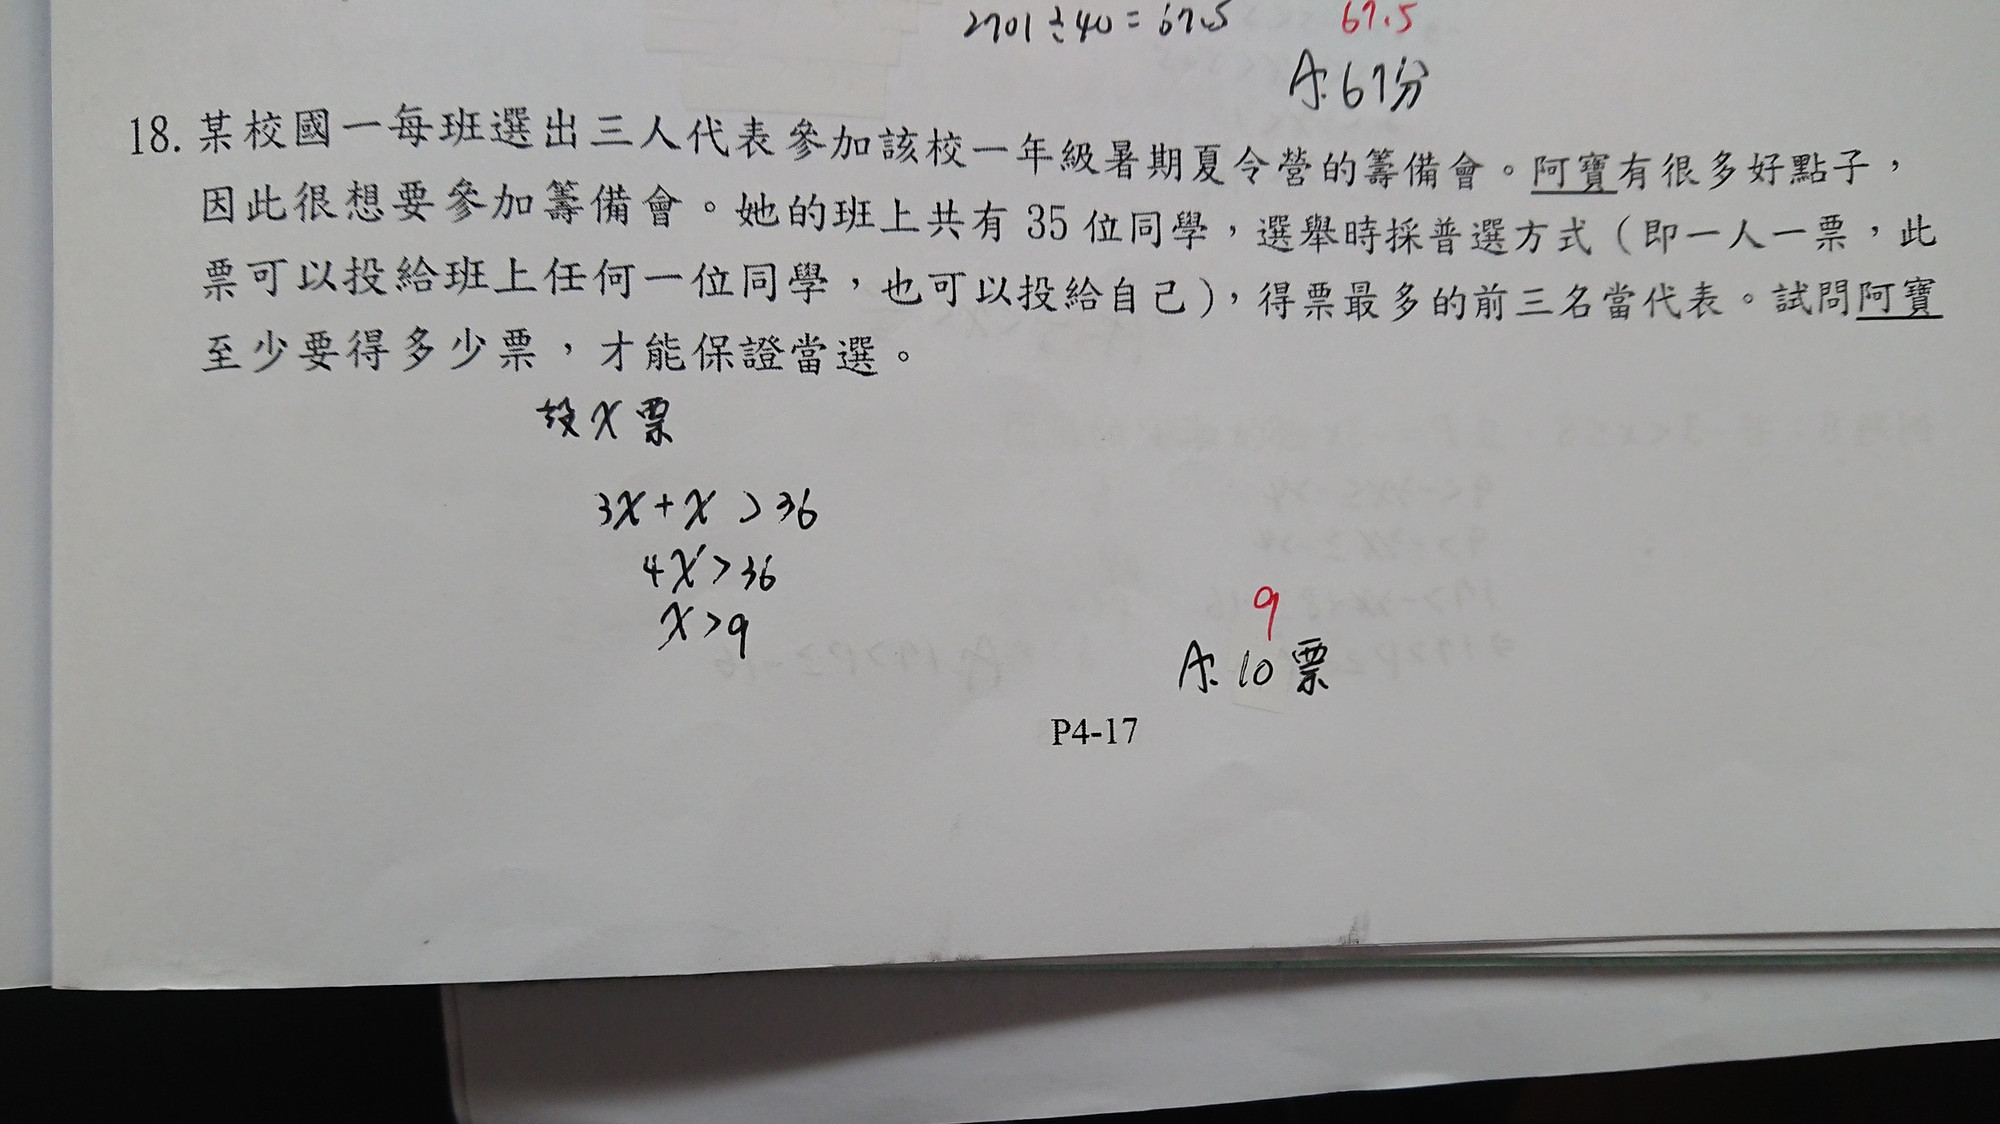 2701÷40=67.5 67.5
A:67分
18. 某校國一每班選出三人代表參加該校一年級暑期夏令營的籌備會。阿寶有很多好點子，
因此很想要參加籌備會。她的班上共有 35 位同學，選舉時採普選方式（即一人一票，此
票可以投給班上任何一位同學，也可以投給自己），得票最多的前三名當代表。試問阿寶
至少要得多少票，才能保證當選。
設 x 票
3x+x>36
4x>36
x>9
9
A:10票
P4-17